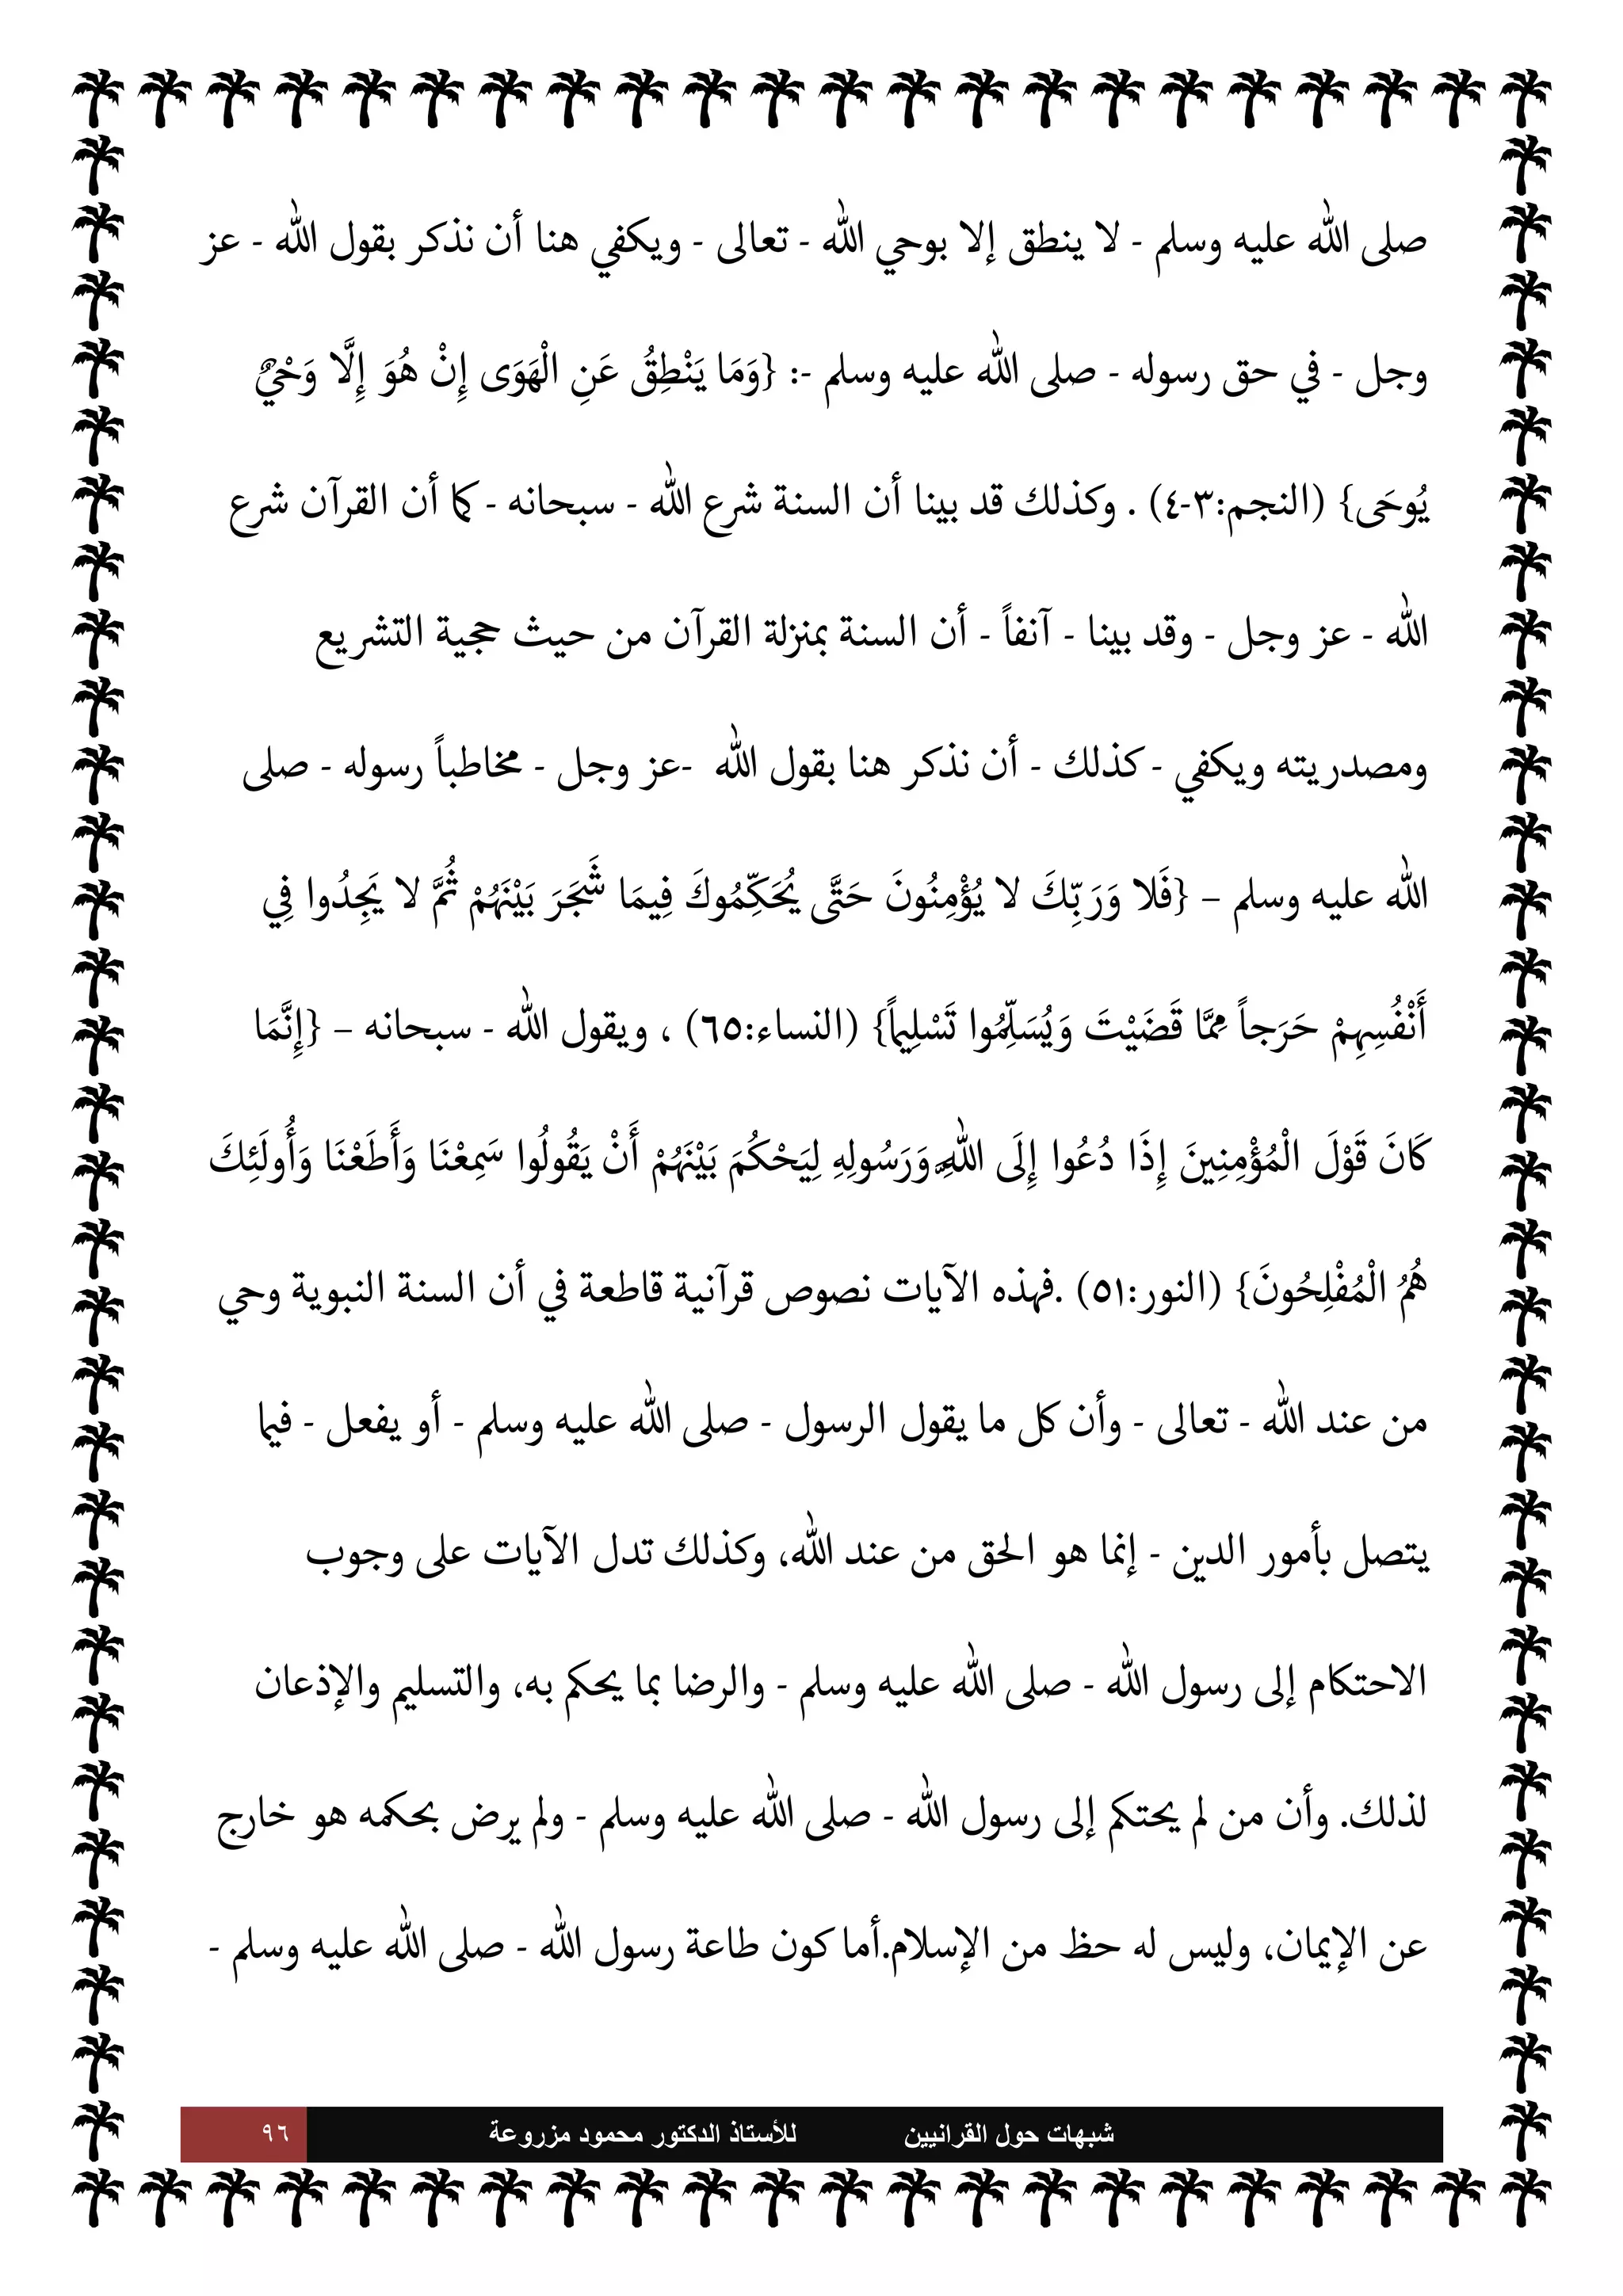 صلى الله عليه وسلم - لا ينطق إلا بوحي الله - تعالى - ويكفي هنا أن نذكر بقول الله - عز
وجل - في حق رسوله - صلى الله عليه وسلم -: {وَمَا يَنْطِقُ عَنِ الْهَوَى إِنْ هُوَ إِلَّا وَحْيٌ
يُوحَى} (النجم:٣-٤) . وكذلك قد بينا أن السنة شرع الله - سبحانه - كما أن القرآن شرع
الله - عز وجل - وقد بينا - آنفاً - أن السنة بمنزلة القرآن من حيث حجية التشريع
ومصدريته ويكفي - كذلك - أن نذكر هنا بقول الله -عز وجل - مخاطباً رسوله - صلى
الله عليه وسلم – {فَلا وَرَبِّكَ لا يُؤْمِنُونَ حَتَّى يُحَكِّمُوكَ فِيمَا شَجَرَ بَيْنَهُمْ ثُمَّ لا يَجِدُوا فِي
أَنْفُسِهِمْ حَرَجاً مِمَّا قَضَيْتَ وَيُسَلِّمُوا تَسْلِيماً} (النساء:٦٥) ، ويقول الله - سبحانه – {إِنَّمَا
كَانَ قَوْلَ الْمُؤْمِنِينَ إِذَا دُعُوا إِلَى اللَّهِ وَرَسُولِهِ لِيَحْكُمَ بَيْنَهُمْ أَنْ يَقُولُوا سَمِعْنَا وَأَطَعْنَا وَأُولَئِكَ
هُمُ الْمُفْلِحُونَ} (النور:٥١) .فهذه الآيات نصوص قرآنية قاطعة في أن السنة النبوية وحي
من عند الله - تعالى - وأن كل ما يقول الرسول - صلى الله عليه وسلم - أو يفعل - فيما
يتصل بأمور الدين - إنما هو الحق من عند الله، وكذلك تدل الآيات على وجوب
الاحتكام إلى رسول الله - صلى الله عليه وسلم - والرضا بما يحكم به، والتسليم والإذعان
لذلك. وأن من لم يحتكم إلى رسول الله - صلى الله عليه وسلم - ولم يرض بحكمه هو خارج
عن الإيمان، وليس له حظ من الإسلام.أما كون طاعة رسول الله - صلى الله عليه وسلم -
شبهات حول القرانيين للأستاذ الدكتور محمود مزروعة ٩٦